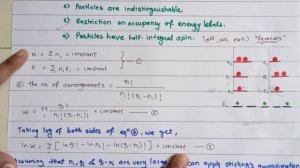 a) Particles are indistinguishable.
b) Restriction on occupancy of energy levels.
c) Particles have half-integral spin.
"Fermions"
N = Σ nᵢ = constant
E = Σ nᵢ εᵢ = constant
The no of arrangements = gᵢ! / nᵢ! (gᵢ-nᵢ)!
W = π gᵢ! / nᵢ! (gᵢ-nᵢ)! × constant — ②
Taking log of both sides of eqⁿ ②, we get,
ln W = Σ [ ln gᵢ! - ln nᵢ! - ln (gᵢ-nᵢ)! ] + constant — ③
Assuming that nᵢ, gᵢ & gᵢ-nᵢ are very large can apply stirling's approximation